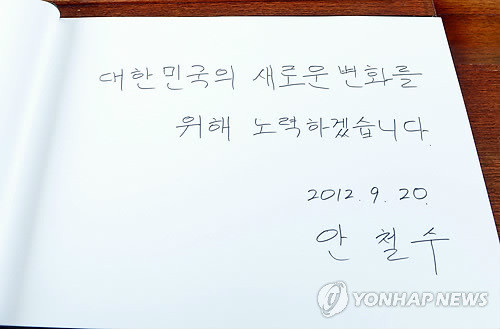 대한민국의 새로운 변화를
위해 노력하겠습니다.
2012. 9. 20.
안 철 수
YONHAPNEWS